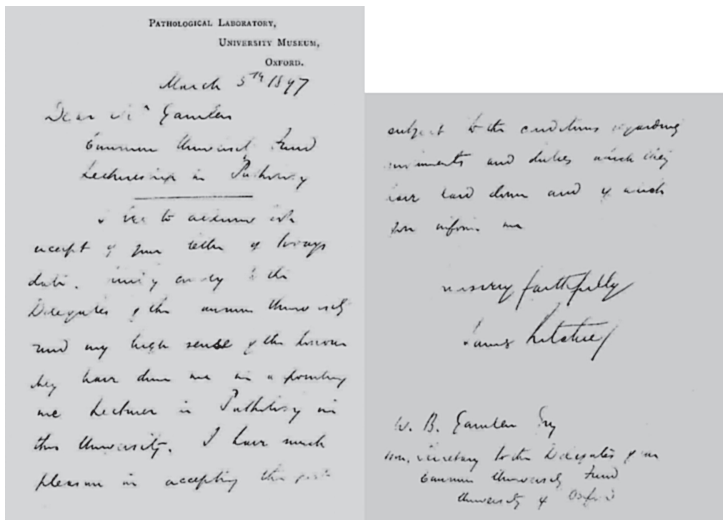 PATHOLOGICAL LABORATORY,
UNIVERSITY MUSEUM,
OXFORD.
March 5th 1897
Dear Mr Gamlen
Common University Fund
Lectureship in Pathology
I to acknowledge
receipt of your letter of
date. convey to the
Delegates of the Common University
Fund my high sense of the honour
they have done me in appointing
me Lecturer in Pathology in
this University. I have much
pleasure in accepting the post
subject to the conditions regarding
emoluments and duties which they
have laid down and of which
you inform me
yours very faithfully
James Ritchie
W. B. Gamlen Esq
Hon. Secretary to the Delegates of the
Common University Fund
University of Oxford